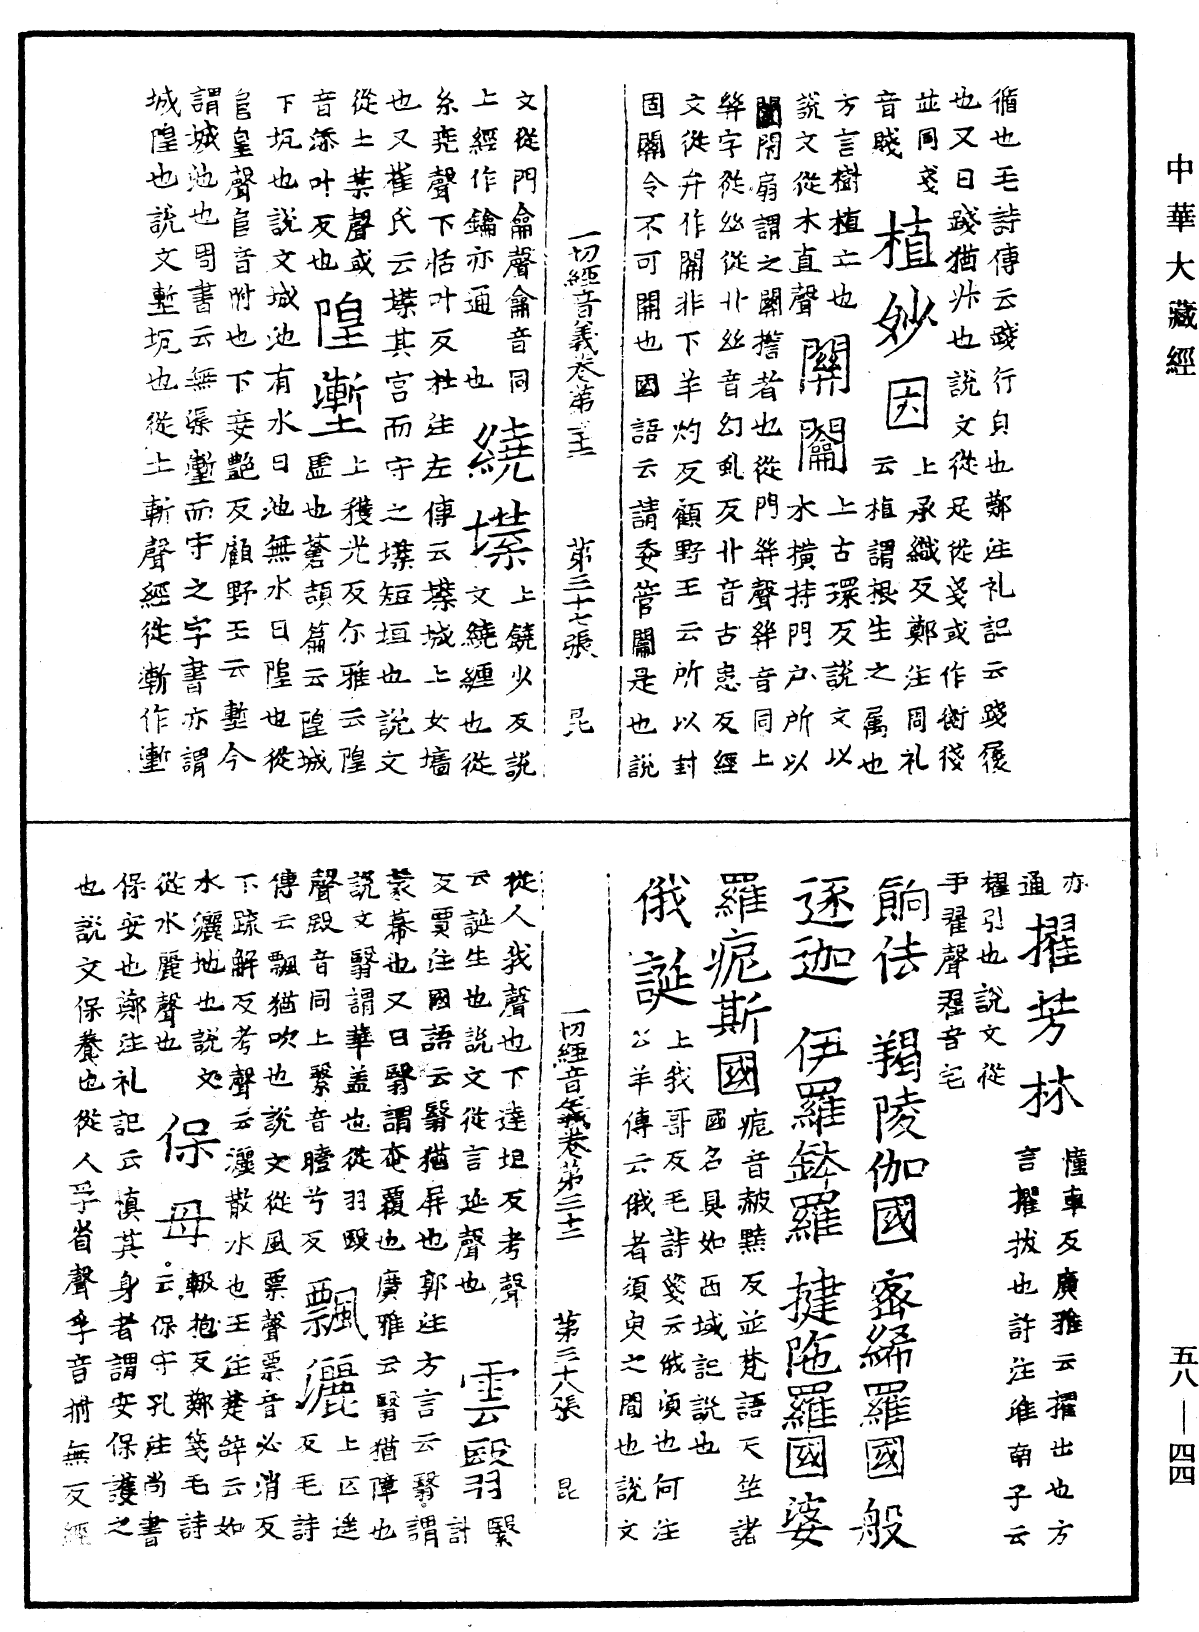 中華大藏經
循也毛詩傳云踐行皃也鄭注礼記云踐履
也又曰踐猶升也說文從足從戔或作衘後
並同戔音賤
植妙因
上承織反鄭注周礼云植謂根生之属也
方言樹植立也
說文從木直聲
關闟
上古環反說文以水橫持門户所以
閇扇謂之關擔者也從門𢇇聲𢇇音同上
𢇇字從丝從丱丝音幻虬反丱音古患反經
文從弁作開非下羊灼反顧野王云所以封
固關令不可開也國語云請委管闟是也說
一切經音義卷第 第三十七張 昆
文從門龠聲龠音同
上經作鑰亦通也
繞堞
上饒少反說文繞纏也從
糸堯聲下恬叶反杜注左傳云堞城上女墻
也又崔氏云堞其宮而守之堞短垣也說文
從土葉聲或
音牒叶反也
隍壍
上獲光反尒雅云隍
虛也蒼頡篇云隍城
下坑也說文城池有水曰池無水曰隍也從
𨸏皇聲𨸏音附也下妾艷反顧野王云壍今
謂城池也周書云無渠壍而守之字書亦謂
城隍也說文壍坑也從土斬聲經從漸作壍
亦通
擢芳林
憧𨋎反廣雅云擢出也方
言擢拔也許注淮南子云
櫂引也說文從
手翟聲翟音宅
餉佉 羯陵伽國 密絺羅國 般
逐迦 伊羅鉢羅 揵陁羅國 婆
羅痆斯國
痆音赧黠反並梵語天竺諸
國名具如西域記說也
俄誕
上我哥反毛詩箋云俄頃也何注
公羊傳云俄者須臾之間也說文
從人我聲也下達坦反考聲
云誕生也說文從言延聲也
雲翳
緊計
反賈注國語云翳猶屏也郭注方言云翳謂
蒙幕也又曰翳謂奄覆也廣雅云翳猶障也
說文翳謂華盖也從羽殹
聲殹音同上緊音瞖兮反
飄灑
上匹遙反毛詩
傳云飄猶吹也說文從風票聲票音必消反
下䟽解反考聲云灑散水也王注楚辭云如
水灑地也說文
從水麗聲也
保母
報抱反鄭箋毛詩
云保守孔注尚書
保安也鄭注礼記云慎其身者謂安保護之
也說文保養也從人孚省聲孚音撫無反經
一切經音義卷第三十三 第三十八張 昆
五八—四四